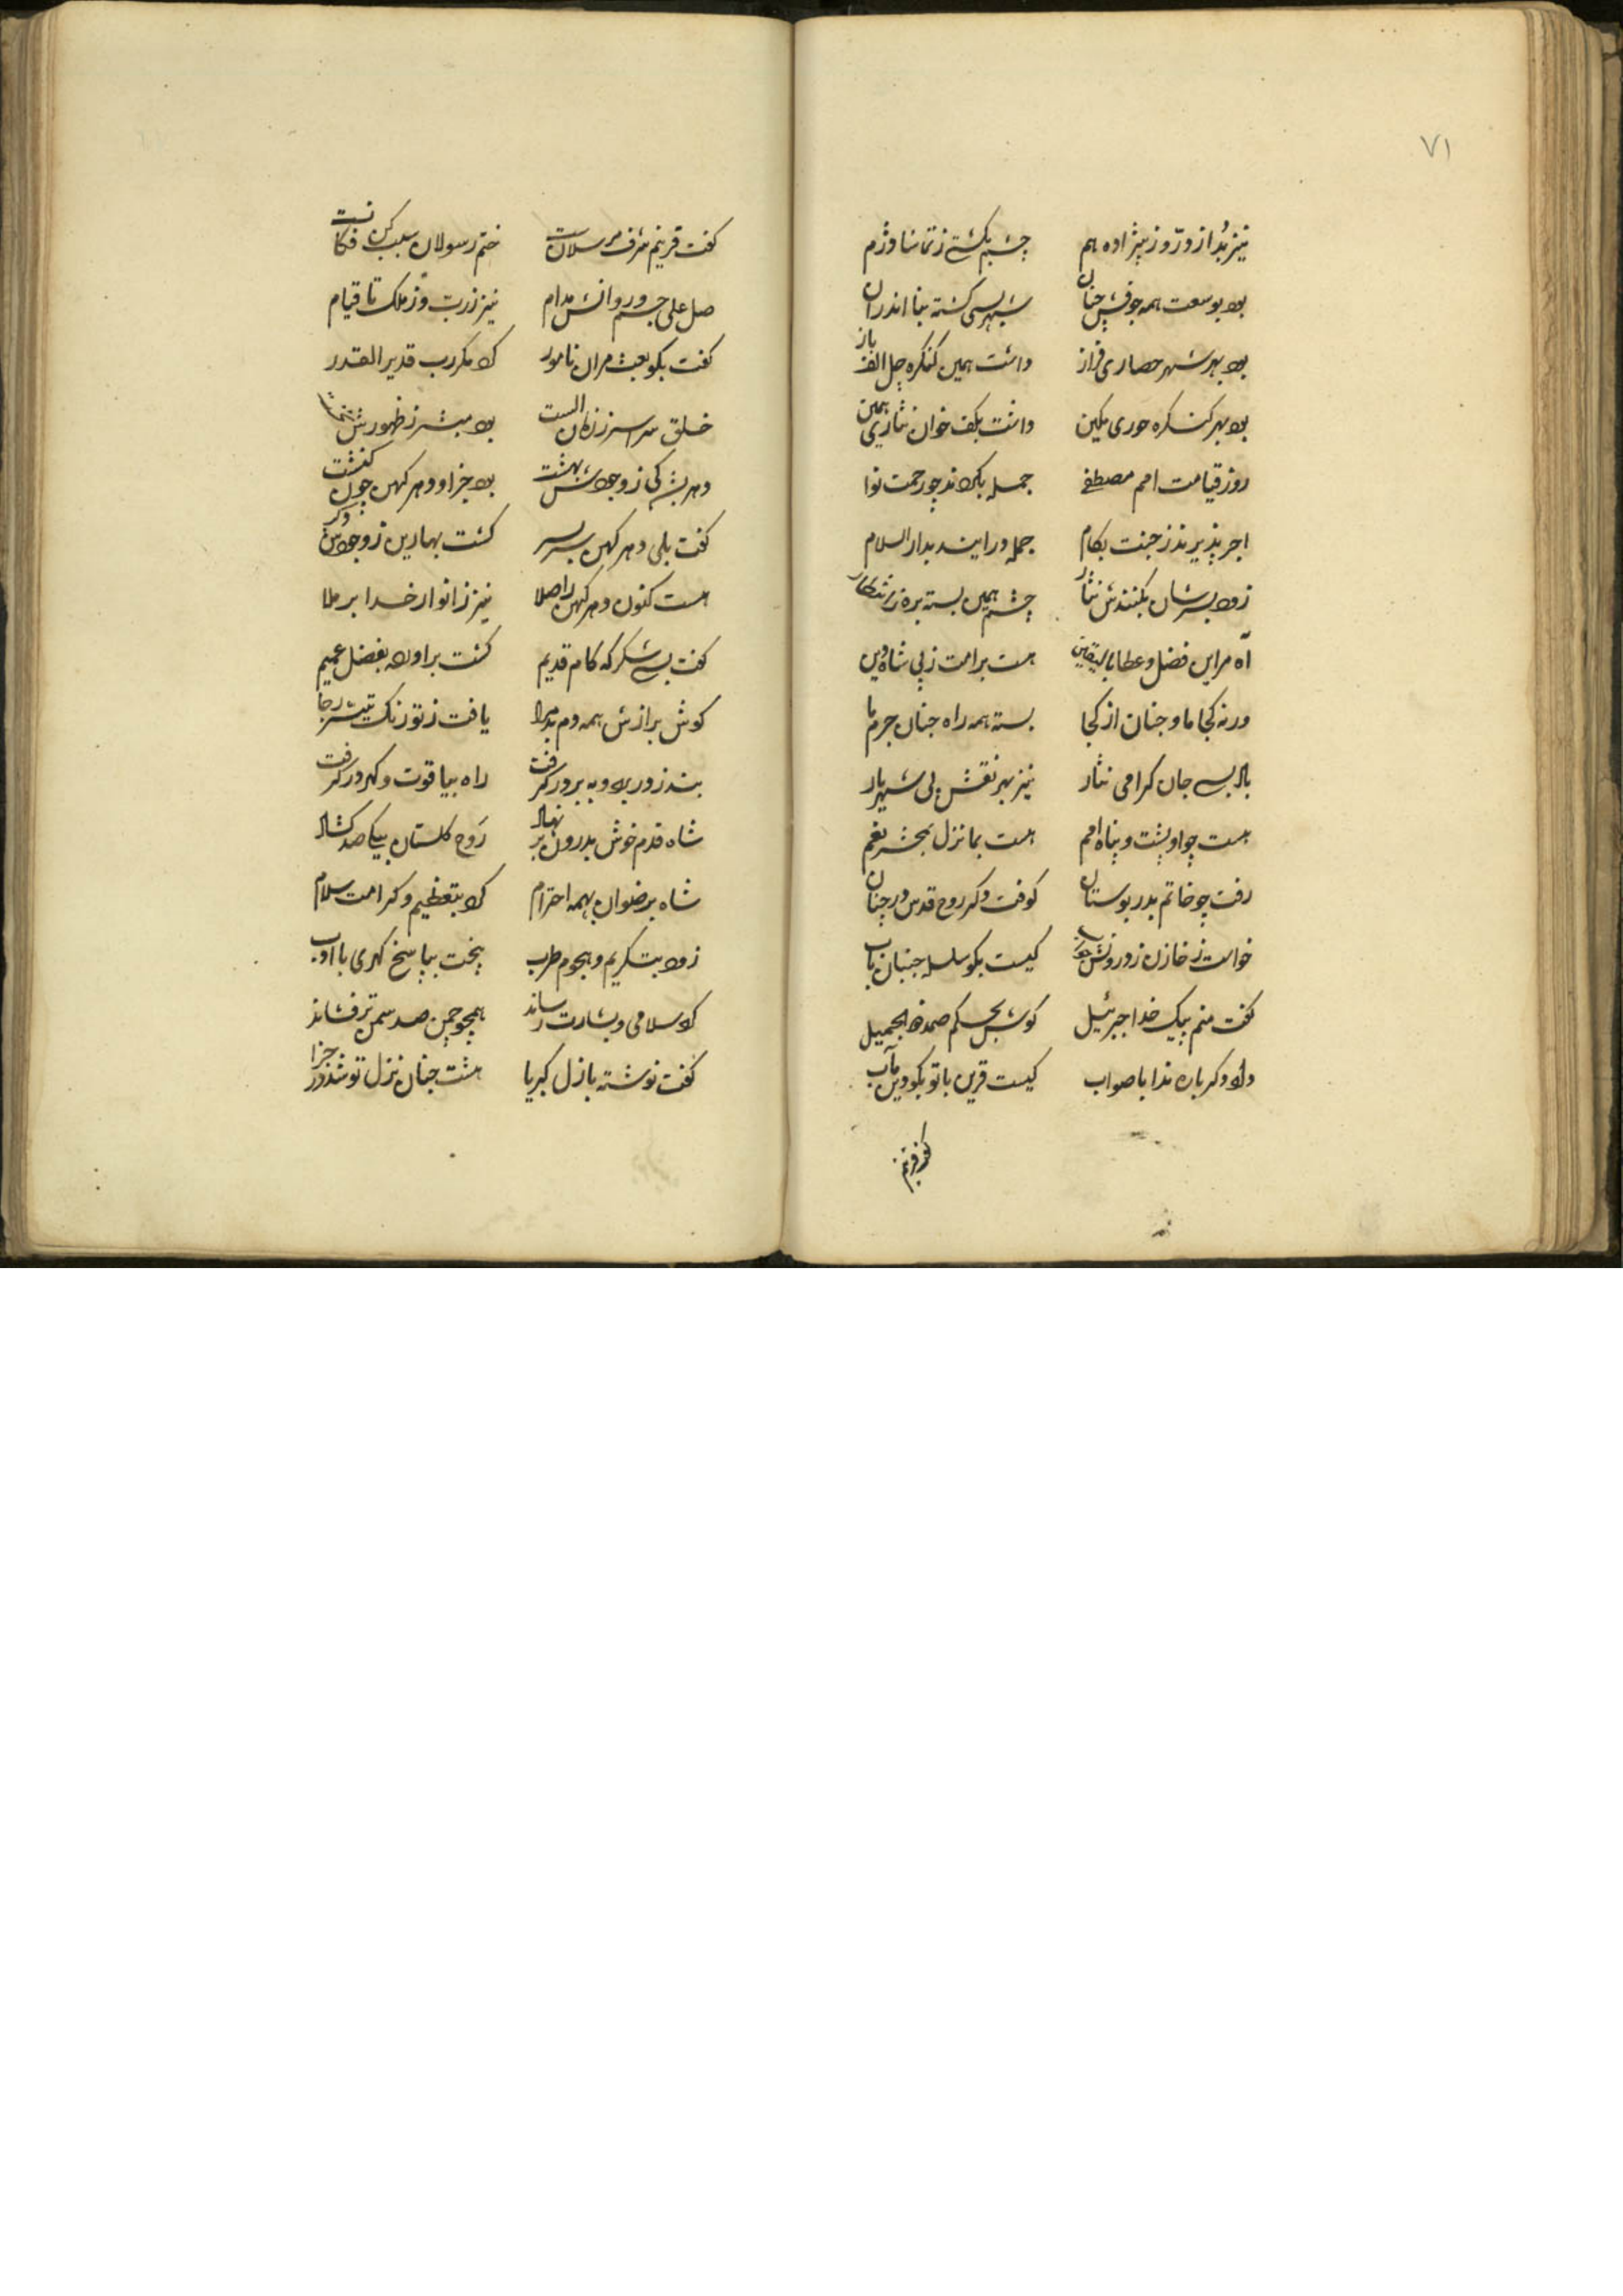 ۷۱
نیز بُد از دُرّ و ز بیژاده هم چشم نگشتی ز تماشا دژم
بود بوسعت همه جوفش جنان شهر بسی گشته بنا اندران
بود بهر شهر حصاری فراز داشت همین کنکره چل الف باز
بود بهر کنکره حوری مکین داشت بکف خوان نثاری همین
روز قیامت امم مصطفی جمله بکردند چو رحمت نوا
اجر پذیرند ز جنت بکام جمله درایند بدار السلام
زود بسرشان بکنندش نثار چشم همین بسته بره ز انتظار
آه مر این فضل و عطا بالیقین هست بر امت ز پی شاه دین
ورنه کجا ما و جنان از کجا بسته همه راه جنان جرم ما
باد بسی جان کرامی نثار نیز بهر نقش پی شهریار
هست چو او پشت و پناه امم هست بما نزل بحشر نعم
رفت چو خاتم بدر بوستان کوفت دکر روح قدس در جنان
خواست ز خازن ز درونش جواب کیست بکو سلسله جنبان باب
کفت منم پیک خدا جبرئیل کوش بحکم صمد الجمیل
داد دکر باره ندا با صواب کیست قرین با تو بکو دین مآب
کفت قرینم
کفت قرینم شرف مرسلان است ختم رسولان سبب کن فکانست
صل علی جسم و روانش مدام نیز ز رب وز ملک تا قیام
کفت بکو بعث مر آن نامور کرد مکر رب قدیر القدر
خلق سراسر ز زمان الست بود مبشر ز ظهورش
دهر بشد کی ز وجودش بهشت بود جز او دهر کهن چون کنشت
کفت بلی دهر کهن سر بسر کشت بهارین ز وجودش دکر
هست کنون دهر کهن را صلا نیز ز انوار خدا بر ملا
کفت بسی شکر که کام قدیم کشت براورده بفضل عمیم
کوش بر ازش همه دم بد مرا یافت ز تو زنک تیسر رجا
بند ز در بود و به برور کرفت راه بیاقوت و کهر در کرفت
شاه قدم خوش بدرون بر نهاد رَوح کلستان بیکا صد کشاد
شاه برضوان بهمه احترام کرد بتعظیم و کرامت سلام
زود بتکریم و هجوم طرب پخت بپاسخ کهری با ادب
کرد سلامی و بشارت رساند همچو چمن صد سمن تر فشاند
کفت نوشته بازل کبریا هشت جنان نزل تو شد در جزا